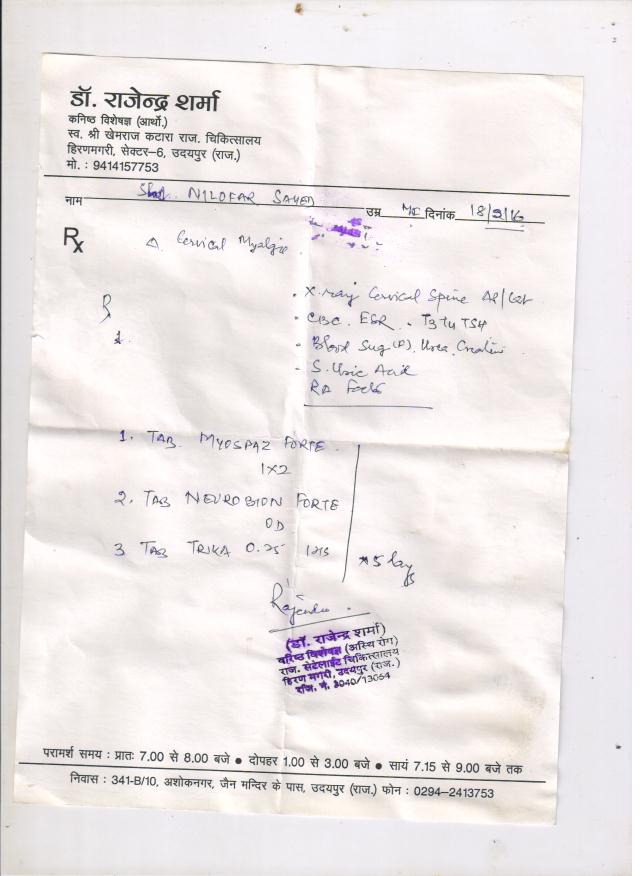 डॉ. राजेन्द्र शर्मा
कनिष्ठ विशेषज्ञ (आर्थो.)
स्व. श्री खेमराज कटारा राज. चिकित्सालय
हिरणमगरी, सेक्टर-6, उदयपुर (राज.)
मो. : 9414157753
नाम NILOFAR SAYED उम्र दिनांक 18/9/16
Rx
Δ Cervical Myalgia
• X-ray Cervical Spine AP/Lat
• CBC. ESR. T3 T4 TSH
1.
• Blood Sug (R), Urea, Creatin
- S. Uric Acid
RA Factor
1. TAB. MYOSPAZ FORTE.
1x2
2. TAB NEUROBION FORTE
OD
3 TAB TRIKA 0.25 1HS
x 5 days
(डॉ. राजेन्द्र शर्मा)
वरिष्ठ विशेषज्ञ (अस्थि रोग)
राज. सेटेलाईट चिकित्सालय
हिरण मगरी, उदयपुर (राज.)
रजि. नं. 3040/13064
परामर्श समय : प्रातः 7.00 से 8.00 बजे ● दोपहर 1.00 से 3.00 बजे ● सायं 7.15 से 9.00 बजे तक
निवास : 341-B/10, अशोकनगर, जैन मन्दिर के पास, उदयपुर (राज.) फोन : 0294-2413753